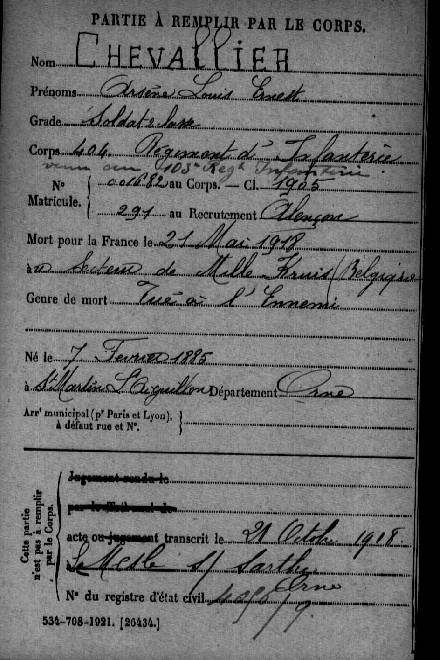 PARTIE À REMPLIR PAR LE CORPS.
Nom CHEVALLIER
Prénoms Arsène Louis Ernest
Grade Soldat 2e classe
Corps 404 Régiment d'Infanterie
venu au 103e Regt Infanterie
N° 001682 au Corps. — Cl. 1905
Matricule. 291 au Recrutement Alençon
Mort pour la France le 21 Mai 1918
à Secteur de Mille Kruis (Belgique
Genre de mort Tué à l'Ennemi
Né le 7 Février 1885
à St Martin L'Aiguillon Département Orne
Arrt municipal (pr Paris et Lyon),
à défaut rue et N°.
Cette partie
n'est pas à remplir
par le Corps.
Jugement rendu le
par le Tribunal de
acte ou jugement transcrit le 21 Octobre 1918
Le Mesle s/ Sarthe
Orne
N° du registre d'état civil
534-708-1921. [26434.]